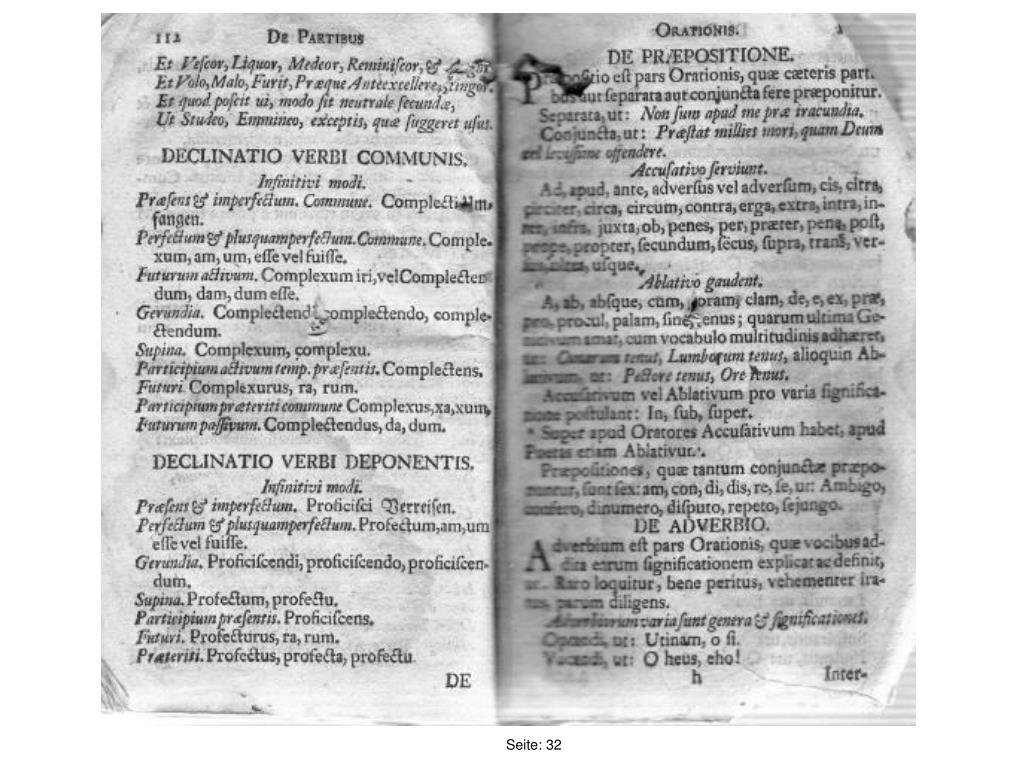 112 DE PARTIBUS
Et Veſcor, Liquor, Medeor, Reminiſcor, &
Et Volo, Malo, Furit, Præque Anteexcellere,
Et quod poſcit ui, modo ſit neutrale ſecundæ,
Ut Studeo, Emmineo, exceptis, quæ ſuggeret uſus.
DECLINATIO VERBI COMMUNIS.
Infinitivi modi.
Præſens & imperfectum. Commune. Complecti
fangen.
Perfectum & plusquamperfectum. Commune. Comple-
xum, am, um, eſſe vel fuiſſe.
Futurum activum. Complexum iri, vel Complecten
dum, dam, dum eſſe.
Gerundia. Complectendi complectendo, comple-
ctendum.
Supina. Complexum, complexu.
Participium activum temp. præſentis. Complectens.
Futuri Complexurus, ra, rum.
Participium præteriti commune Complexus, xa, xum,
Futurum paſſivum. Complectendus, da, dum.
DECLINATIO VERBI DEPONENTIS.
Infinitivi modi.
Præſens & imperfectum. Proficiſci Verreiſen.
Perfectum & plusquamperfectum. Profectum, am, um
eſſe vel fuiſſe.
Gerundia. Proficiſcendi, proficiſcendo, proficiſcen-
dum.
Supina. Profectum, profectu.
Participium præſentis. Proficiſcens.
Futuri. Profecturus, ra, rum.
Præteriti. Profectus, profecta, profectu
DE
ORATIONIS.
DE PRÆPOSITIONE.
Præpoſitio eſt pars Orationis, quæ cæteris part.
bus aut ſeparata aut conjuncta fere præponitur.
Separata, ut: Non ſum apud me præ iracundia.
Conjuncta, ut: Præſtat millies mori, quam Deum
vel leviſſime offendere.
Accuſativo ſerviunt.
Ad, apud, ante, adverſus vel adverſum, cis, citra,
circiter, circa, circum, contra, erga, extra, intra, in-
ter, infra, juxta, ob, penes, per, præter, pene, poſt,
prope, propter, ſecundum, ſecus, ſupra, trans, ver-
ſus, ultra, uſque.
Ablativo gaudent.
A, ab, abſque, cum, coram, clam, de, e, ex, præ,
pro, procul, palam, ſine, tenus; quarum ultima Ge-
nitivum amat, cum vocabulo multritudinis adhæret,
ut: tenus, Lumborum tenus, alioquin Ab-
lativum, ut: Pectore tenus, Ore tenus.
Accuſativum vel Ablativum pro varia ſignifica-
tione poſtulant: In, ſub, ſuper.
* Super apud Oratores Accuſativum habet, apud
Poetas etiam Ablativum.
Præpoſitiones, quæ tantum conjunctæ præpo-
nuntur, ſunt ſex: am, con, di, dis, re, ſe, ut: Ambigo,
confero, dinumero, diſputo, repeto, ſejungo.
DE ADVERBIO.
Adverbium eſt pars Orationis, quæ vocibus ad-
dita earum ſignificationem explicat ac definit,
ut: Raro loquitur, bene peritus, vehementer ira-
tus, parum diligens.
Adverbiorum varia ſunt genera & ſignificationes.
Optandi, ut: Utinam, o ſi.
Vocandi, ut: O heus, eho!
h Inter-
Seite: 32